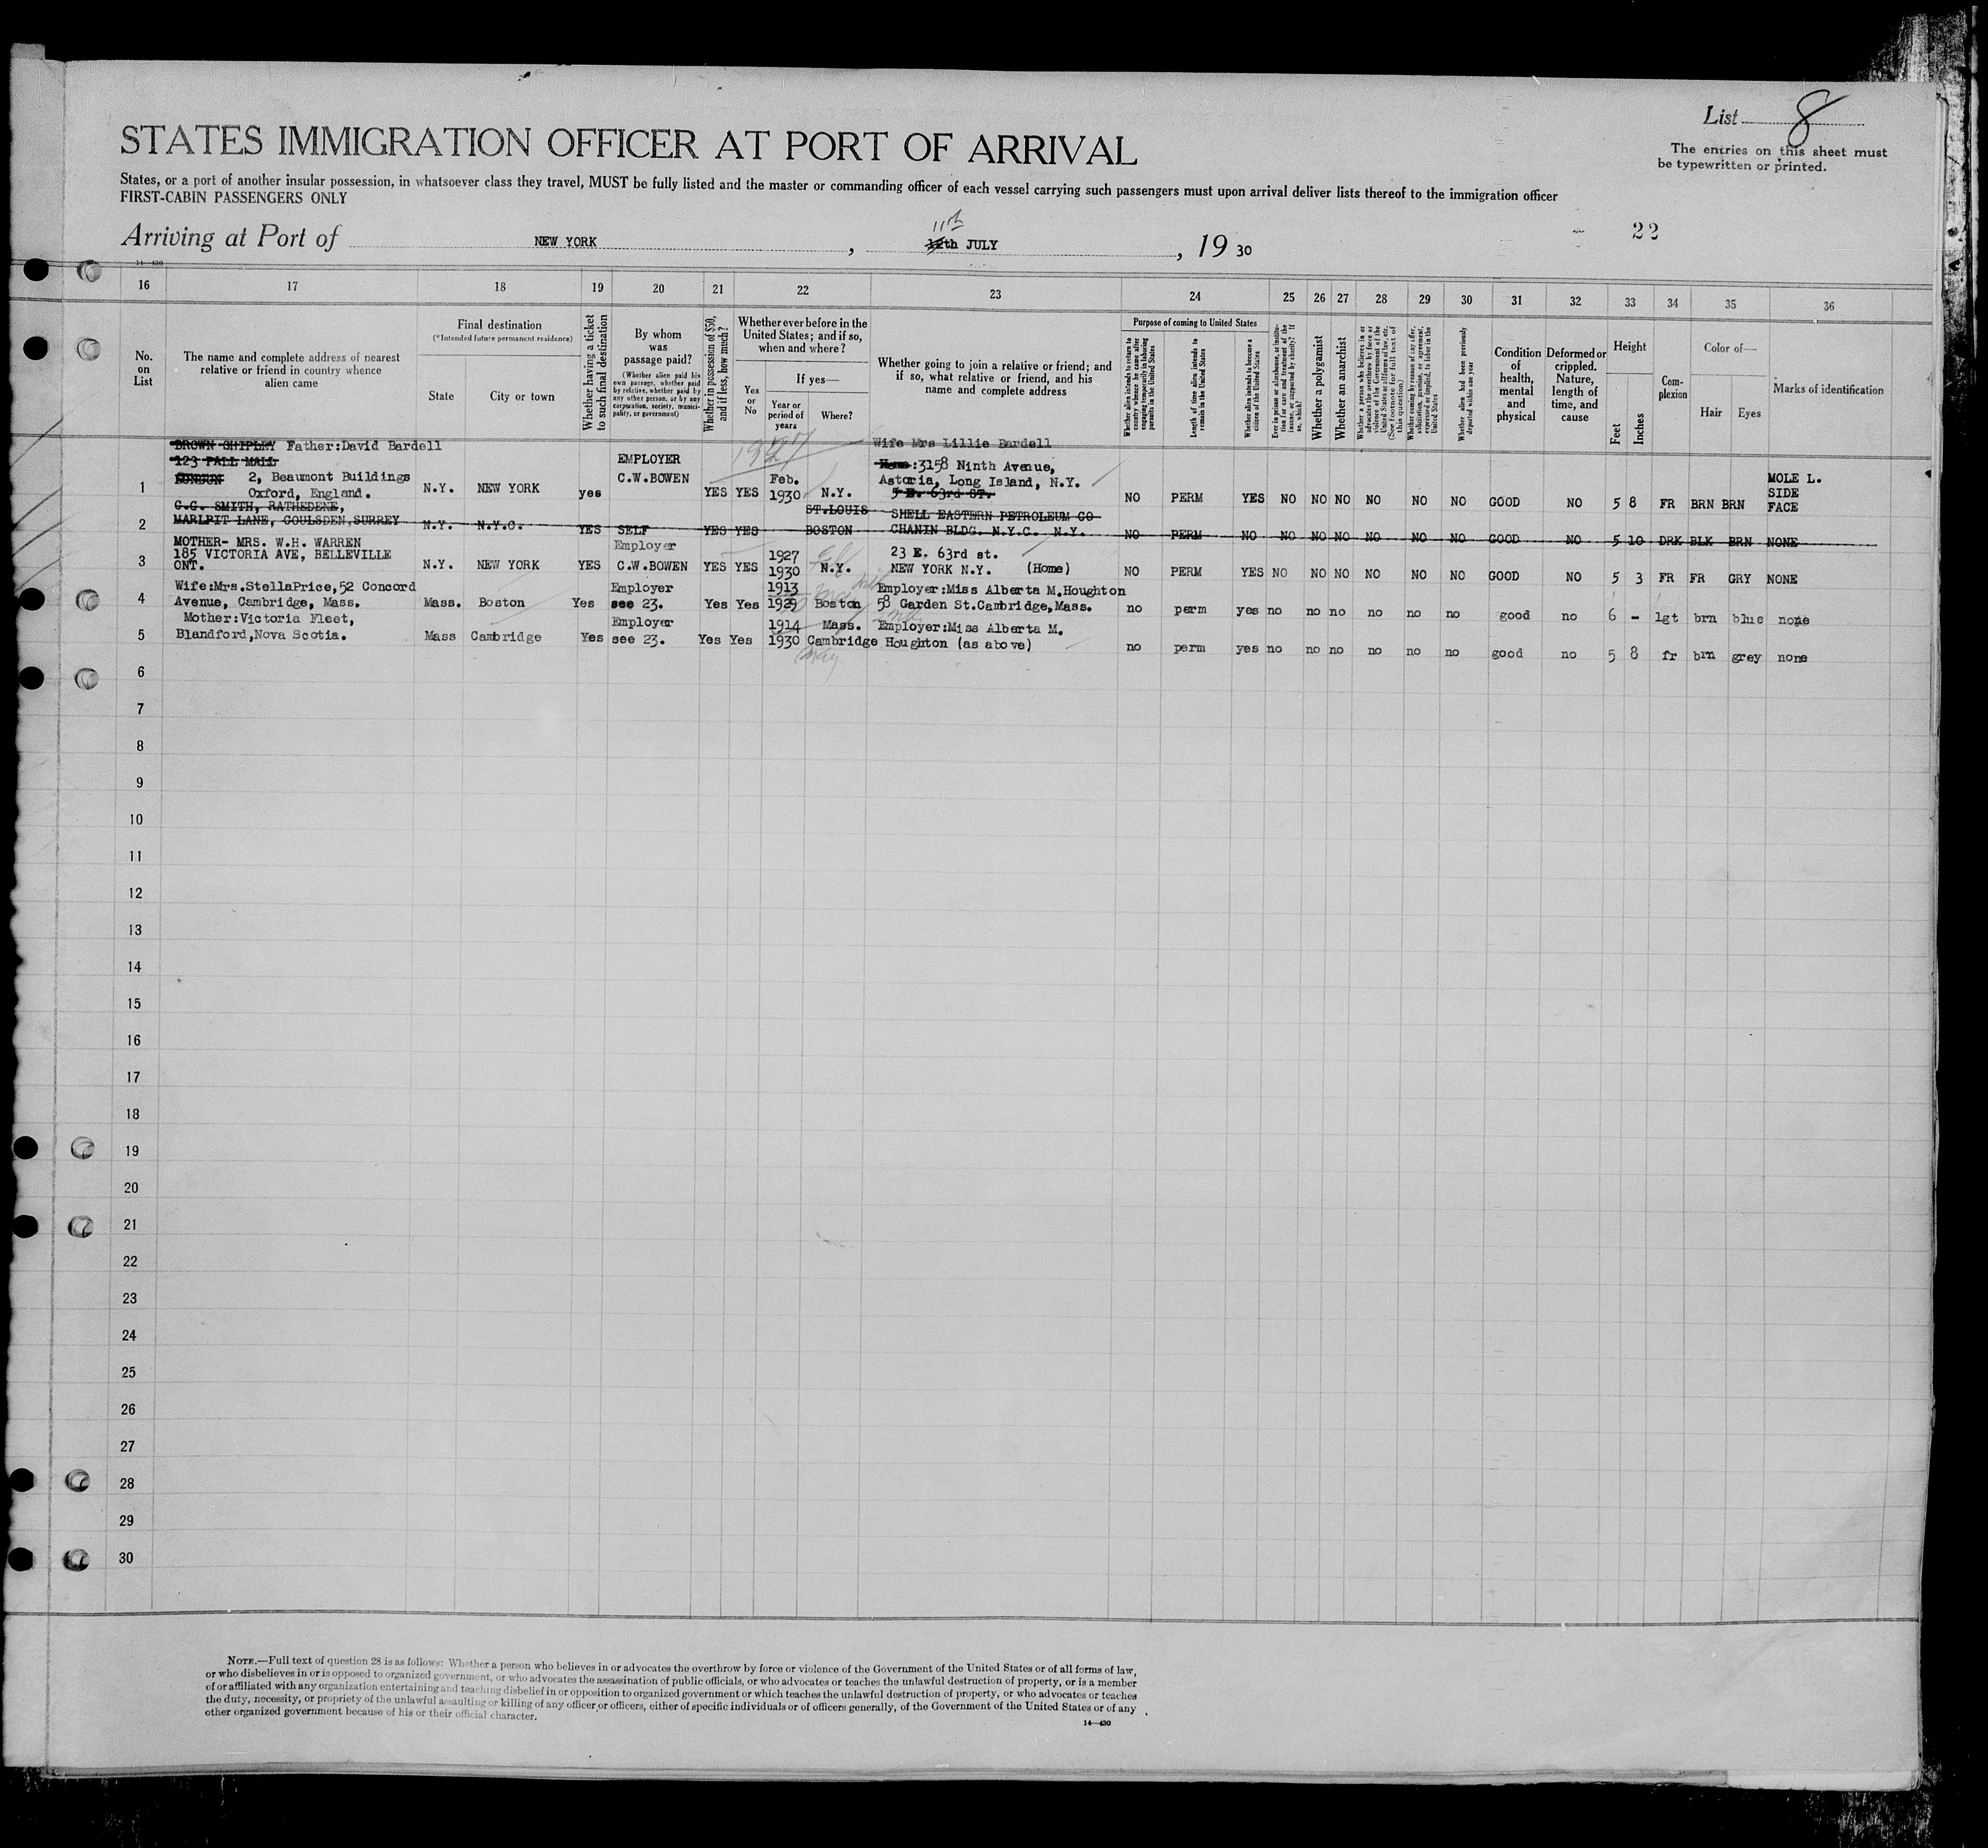 List 8
The entries on this sheet must
be typewritten or printed.
STATES IMMIGRATION OFFICER AT PORT OF ARRIVAL
States, or a port of another insular possession, in whatsoever class they travel, MUST be fully listed and the master or commanding officer of each vessel carrying such passengers must upon arrival deliver lists thereof to the immigration officer
FIRST-CABIN PASSENGERS ONLY
11th
Arriving at Port of NEW YORK, 12th JULY, 19 30
22
14—430
16 17 18 19 20 21 22 23 24 25 26 27 28 29 30 31 32 33 34 35 36
No.
on
List
The name and complete address of nearest
relative or friend in country whence
alien came
Final destination
(*Intended future permanent residence)
State
City or town
Whether having a ticket
to such final destination
By whom
was
passage paid?
(Whether alien paid his
own passage, whether paid
by relative, whether paid by
any other person, or by any
corporation, society, munici-
pality, or government)
Whether in possession of $50,
and if less, how much?
Whether ever before in the
United States; and if so,
when and where?
Yes
or
No
If yes—
Year or
period of
years
Where?
Whether going to join a relative or friend; and
if so, what relative or friend, and his
name and complete address
Purpose of coming to United States
Whether alien intends to return to
country whence he came after
engaging temporarily in laboring
pursuits in the United States
Length of time alien intends to
remain in the United States
Whether alien intends to become a
citizen of the United States
Ever in prison or almshouse, or institu-
tion for care and treatment of the
insane, or supported by charity? If
so, which?
Whether a polygamist
Whether an anarchist
Whether a person who believes in or
advocates the overthrow by force or
violence of the Government of the
United States or all forms of law, etc.
(See footnote for full text of
this question)
Whether coming by reason of any offer,
solicitation, promise, or agreement,
expressed or implied, to labor in the
United States
Whether alien had been previously
deported within one year
Condition
of
health,
mental
and
physical
Deformed or
crippled.
Nature,
length of
time, and
cause
Height
Feet
Inches
Com-
plexion
Color of—
Hair
Eyes
Marks of identification
BROWN SHIPLEY Father:David Bardell
123 PALL MALL
LONDON 2, Beaumont Buildings
Oxford, England.
1 N.Y. NEW YORK yes
EMPLOYER
C.W.BOWEN
YES YES
1927
Feb.
1930 N.Y.
Wife Mrs Lillie Bardell
Home:3158 Ninth Avenue,
Astoria, Long Island, N.Y.
5 E. 63rd ST.
NO PERM YES NO NO NO NO NO NO GOOD NO 5 8 FR BRN BRN
MOLE L.
SIDE
FACE
G.G. SMITH, RATHEDENE,
MARLPIT LANE, COULSDEN, SURREY
2 N.Y. N.Y.C. YES SELF YES YES
ST.LOUIS
BOSTON
SHELL EASTERN PETROLEUM CO
CHANIN BLDG. N.Y.C. N.Y.
NO PERM NO NO NO NO NO NO NO GOOD NO 5 10 DRK BLK BRN NONE
MOTHER- MRS. W.H. WARREN
185 VICTORIA AVE, BELLEVILLE
ONT.
3 N.Y. NEW YORK YES
Employer
C.W.BOWEN
YES YES
1927
1930 N.Y.
23 E. 63rd st.
NEW YORK N.Y. (Home)
NO PERM YES NO NO NO NO NO NO GOOD NO 5 3 FR FR GRY NONE
Wife:Mrs.StellaPrice,52 Concord
Avenue, Cambridge, Mass.
4 Mass. Boston Yes
Employer
see 23.
Yes Yes
1913
1929 Boston
Employer:Miss Alberta M.Houghton
58 Garden St.Cambridge,Mass.
no perm yes no no no no no no good no 6 - lgt brn blue none
Mother:Victoria Fleet,
Blandford,Nova Scotia.
5 Mass Cambridge Yes
Employer
see 23.
Yes Yes
1914 Mass.
1930 Cambridge
May
Employer:Miss Alberta M.
Houghton (as above)
no perm yes no no no no no no good no 5 8 fr brn grey none
6
7
8
9
10
11
12
13
14
15
16
17
18
19
20
21
22
23
24
25
26
27
28
29
30
NOTE.—Full text of question 28 is as follows: Whether a person who believes in or advocates the overthrow by force or violence of the Government of the United States or of all forms of law,
or who disbelieves in or is opposed to organized government, or who advocates the assassination of public officials, or who advocates or teaches the unlawful destruction of property, or is a member
of or affiliated with any organization entertaining and teaching disbelief in or opposition to organized government or which teaches the unlawful destruction of property, or who advocates or teaches
the duty, necessity, or propriety of the unlawful assaulting or killing of any officer or officers, either of specific individuals or of officers generally, of the Government of the United States or of any
other organized government because of his or their official character.
14—430